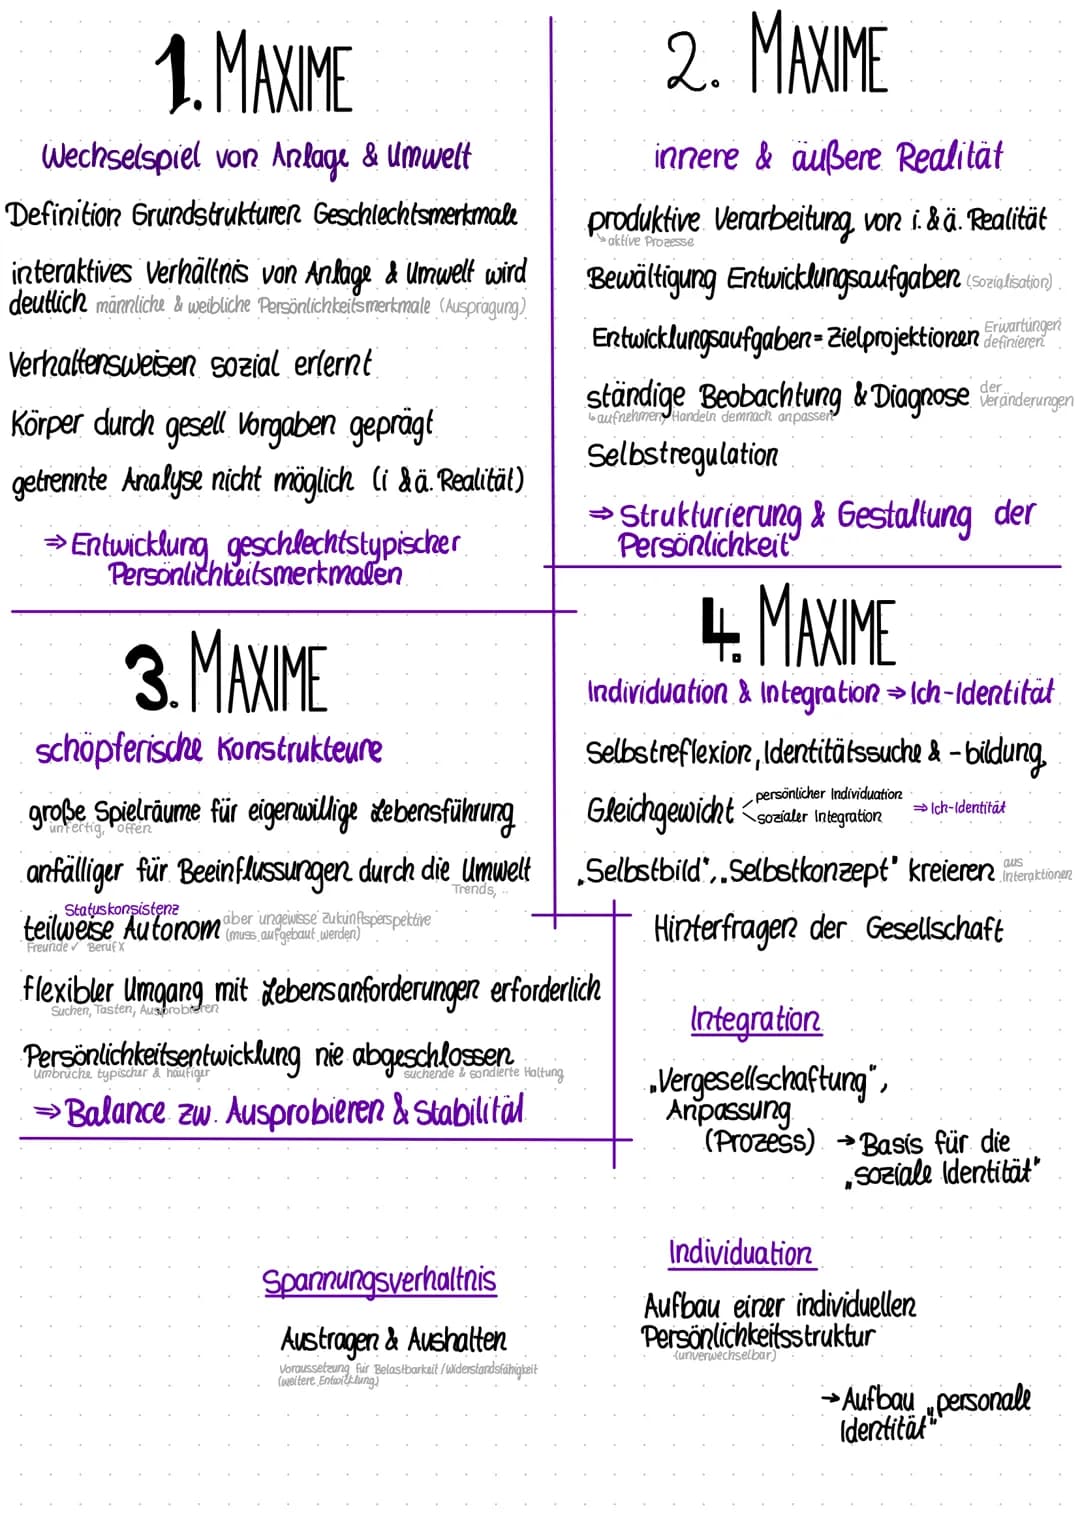 1. MAXIME
Wechselspiel von Anlage & Umwelt
Definition Grundstrukturen Geschlechtsmerkmale
interaktives Verhältnis von Anlage & Umwelt wird
deutlich männliche & weibliche Persönlichkeitsmerkmale (Ausprägung)
Verhaltensweisen sozial erlernt
Körper durch gesell Vorgaben geprägt
getrennte Analyse nicht möglich (i & ä. Realität)
⇒ Entwicklung geschlechtstypischer
Persönlichkeitsmerkmalen
2. MAXIME
innere & äußere Realität
produktive Verarbeitung von i. & ä. Realität
↳ aktive Prozesse
Bewältigung Entwicklungsaufgaben (Sozialisation)
Entwicklungsaufgaben = Zielprojektionen Erwartungen
definieren
ständige Beobachtung & Diagnose der
Veränderungen
↳ aufnehmen, Handeln demnach anpassen
Selbstregulation
⇒ Strukturierung & Gestaltung der
Persönlichkeit
3. MAXIME
schöpferische Konstrukteure
große Spielräume für eigenwillige Lebensführung
unfertig, offen
anfälliger für Beeinflussungen durch die Umwelt
Trends, ..
Statuskonsistenz
teilweise Autonom aber ungewisse Zukunftsperspektive
(muss aufgebaut werden)
Freunde ✓ Beruf x
flexibler Umgang mit Lebensanforderungen erforderlich
Suchen, Tasten, Ausprobieren
Persönlichkeitsentwicklung nie abgeschlossen
Umbrüche typischer & häufiger suchende & sondierte Haltung
⇒ Balance zw. Ausprobieren & Stabilität
4. MAXIME
Individuation & Integration ⇒ Ich-Identität
Selbstreflexion, Identitätssuche & -bildung
Gleichgewicht persönlicher Individuation
sozialer Integration
⇒ Ich-Identität
„Selbstbild", „Selbstkonzept" kreieren aus
Interaktionen
Hinterfragen der Gesellschaft
Integration
„Vergesellschaftung",
Anpassung
(Prozess) → Basis für die
„soziale Identität"
Individuation
Aufbau einer individuellen
Persönlichkeitsstruktur
(unverwechselbar)
→ Aufbau „personale
Identität"
Spannungsverhältnis
Austragen & Aushalten
Voraussetzung für Belastbarkeit / Widerstandsfähigkeit
(weitere Entwicklung)